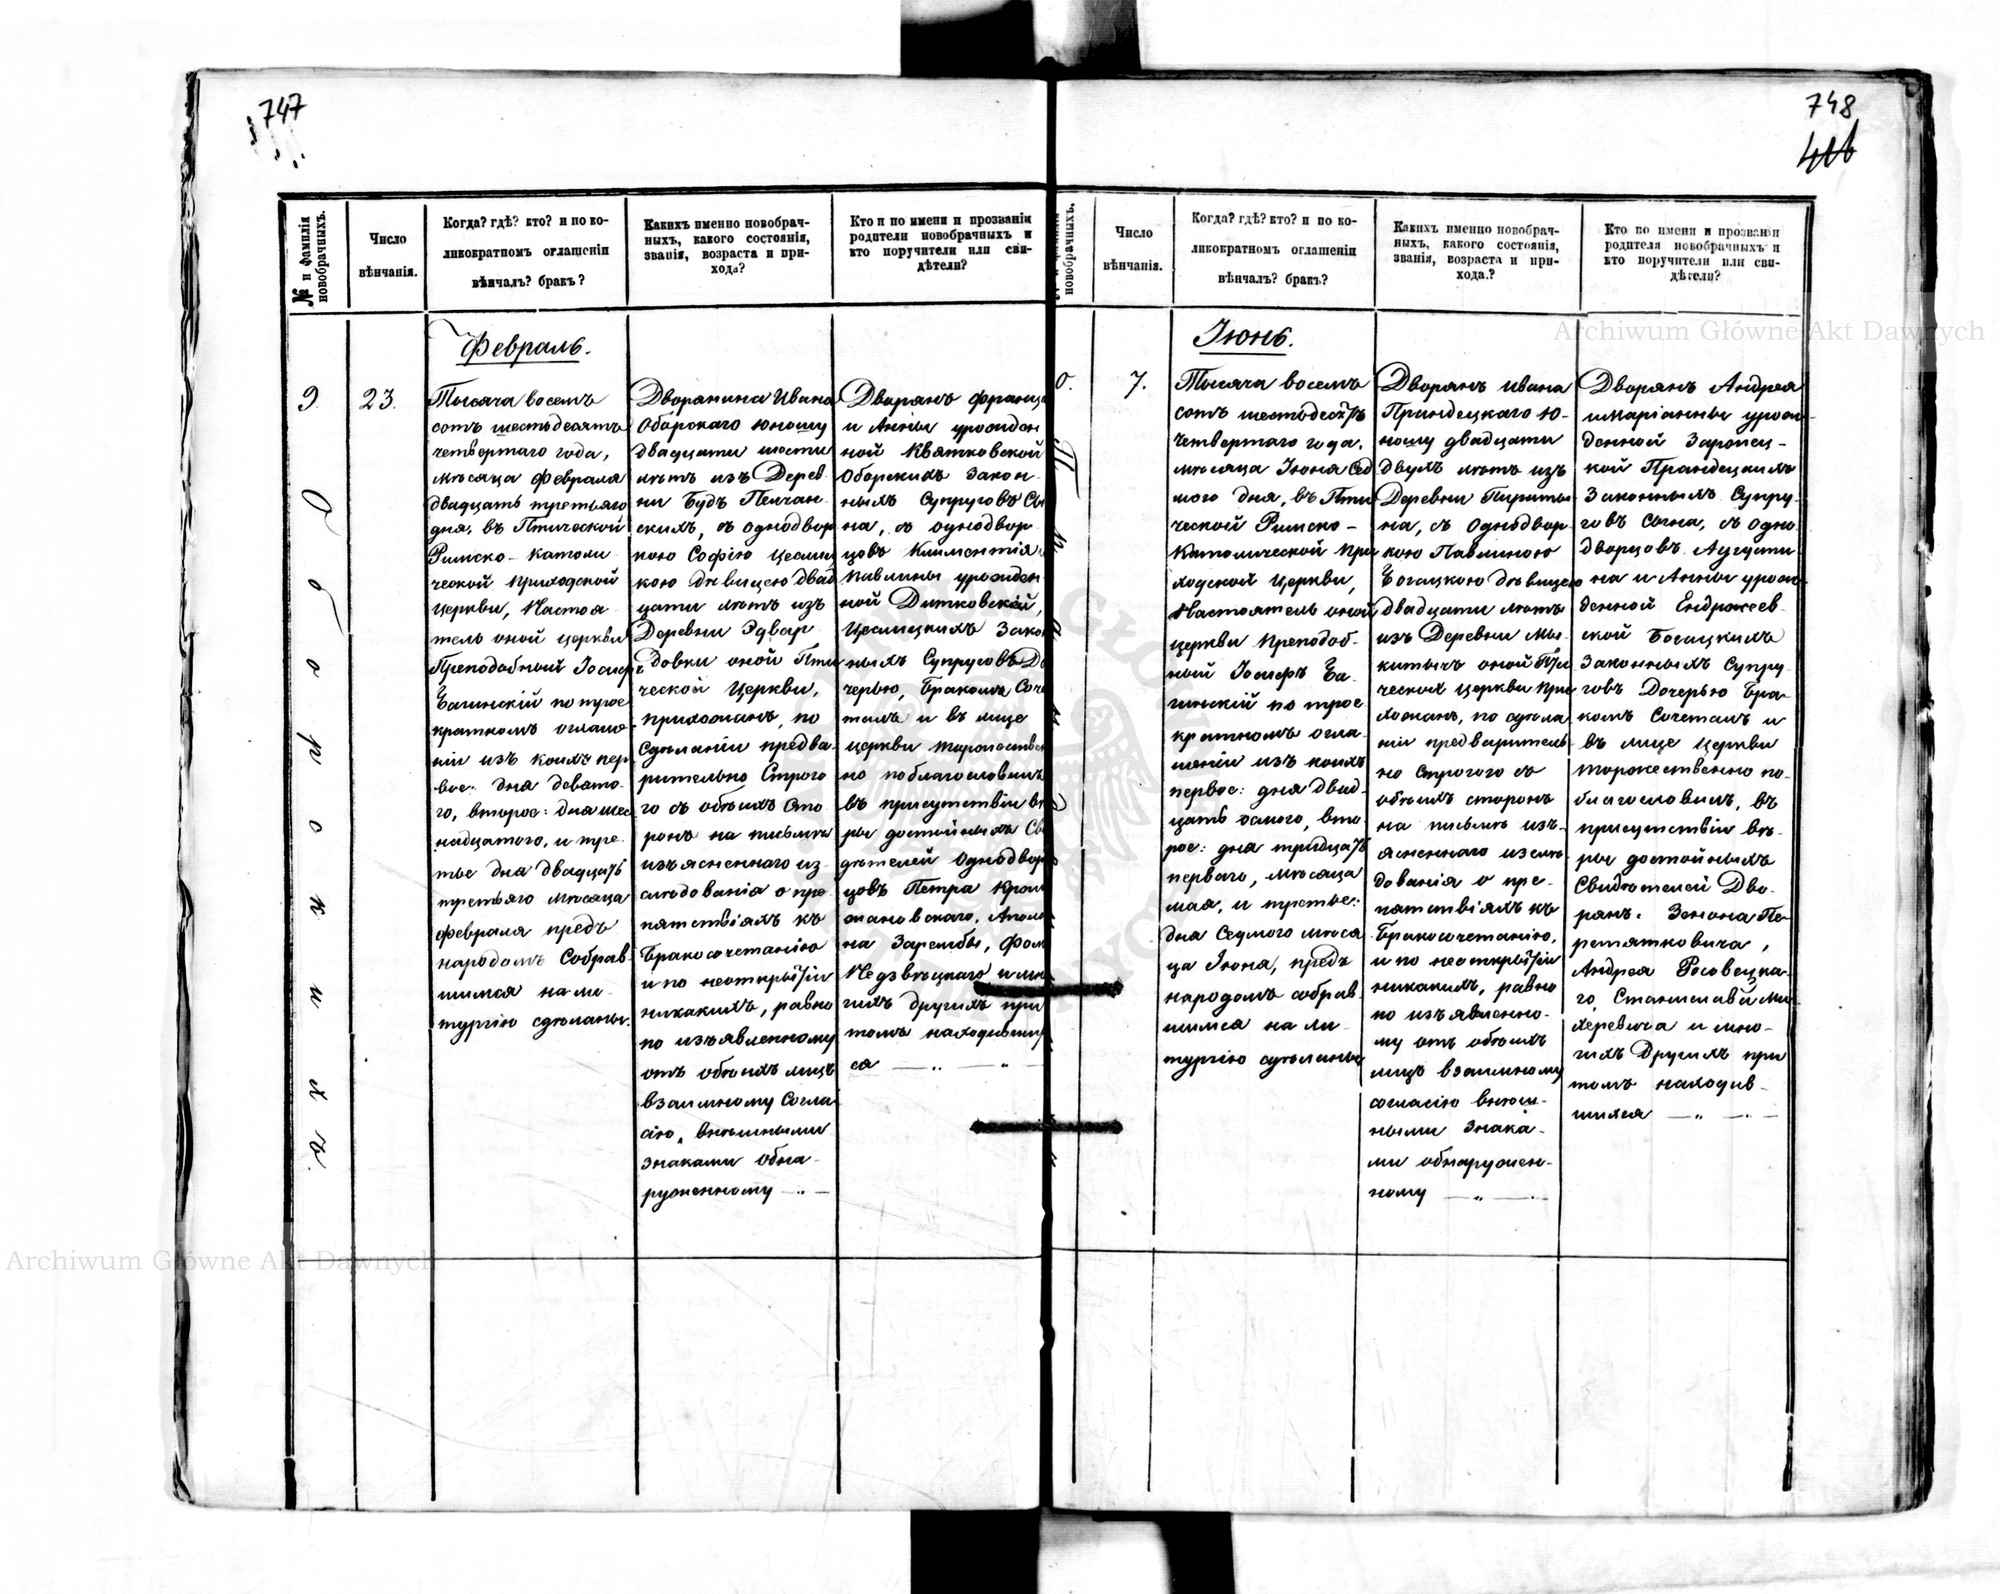 747
№ и фамилія новобрачныхъ.
Число вѣнчанія.
Когда? гдѣ? кто? и по ко-
ликократномъ оглашеніи
вѣнчалъ? бракъ?
Какихъ именно новобрач-
ныхъ, какого состоянія,
званія, возраста и при-
хода?
Кто и по имени и прозванію
родители новобрачныхъ и
кто поручители или сви-
дѣтели?
9.
23.
Февраль.
Тысяча восемъ
сотъ шестьдесятъ
четвертаго года,
мѣсяца Февраля
двадцать третьяго
дня, въ Птической
Римско-католи
ческой приходской
церкви, Настоя
тель оной церкви
Преподобный Іосиф
Багинскій по трое
кратномъ оглаше
ніи изъ коихъ пер
вое: дня девято-
го, второе: дня шес
надцатаго, и тре-
тье дня двадцать
третьяго мѣсяца
февраля предъ
народомъ собрав
шимся на ли-
тургію сдѣланы.
Дворянина Ивана
Оборскаго юношу
двадцати шести
лѣтъ изъ Дерев
ни Будъ Пелчан-
скихъ, съ однодвор
кою Софію Цеслиц
кою дѣвицею двад
цати лѣтъ изъ
Деревни Эдвар
довки оной Пти
ческой Церкви,
прихожанъ, по
сдѣланіи предва-
рительно строго
го съ обѣихъ сто
ронъ на письмѣ
изъясненнаго из-
слѣдованія о пре
пятствіяхъ къ
Бракосочетанію
и по неоткрытіи
никакихъ, равно
по изъявленному
отъ обѣихъ лицъ
взаимному согла
сію, внѣшными
знаками обна-
руженному — „ —
Дворянъ Франц
и Анны урожден
ной Квятковской
Оборскихъ закон-
ныхъ Супруговъ Сы
на, съ однодвор
цовъ Климентія
Павлины урожден
ной Дитковской,
Цеслицкихъ Зако
ныхъ Супруговъ До
черью, бракомъ соче
талъ и въ лице
церкви торжествен
но поблагословилъ
въ присутствіи вѣ
ры достойныхъ Св
дѣтелей однодвор
цовъ Петра Крыш
тановскаго, Аполо
на Зарембы, Фом
Недзвѣцкаго и мн
гихъ другихъ при
томъ находивших
ся — „ — „ —
Оборскихъ.
748
новобрачныхъ.
Число
вѣнчанія.
Когда? гдѣ? кто? и по ко-
ликократномъ оглашеніи
вѣнчалъ? бракъ?
Какихъ именно новобрач-
ныхъ, какого состоянія,
званія, возраста и при-
хода?
Кто по имени и прозванію
родителя новобрачныхъ и
кто поручители или сви-
дѣтели?
0.
7.
Іюнь.
Тысяча восемъ
сотъ шестьдесятъ
четвертаго года,
мѣсяца Іюня сед
мого дня, въ Пти
ческой Римско-
Католической при
ходской церкви,
Настоятель оной
церкви преподоб-
ный Іосифъ Ба-
гинскій по трое
кратномъ огла-
шеніи изъ коихъ
первое: дня двад-
цать осмого, вто
рое: дня тридцать
перваго, мѣсяца
мая, и третье:
дня Седмого мѣся
ца Іюня, предъ
народомъ собрав-
шимся на ли-
тургію сдѣланы
Дворянъ Ивана
Прандецкаго ю-
ношу двадцати
двухъ лѣтъ изъ
Деревни Пирьты
на, съ однодвор
кою Павлиною
Богацкою дѣвицею
двадцати лѣтъ
изъ Деревни Мы-
китычъ оной Пти
ческой церкви при
хожанъ, по сдѣла
ніи предваритель
но строгого съ
обѣихъ сторонъ
на письмѣ изъ-
ясненнаго изслѣ
дованія о пре-
пятствіяхъ къ
бракосочетанію,
и по неоткрытіи
никакихъ, равно
по изъявленно-
му отъ обѣихъ
лицъ взаимному
согласію внѣш-
ными знака-
ми обнаружен-
ному — „ —
Дворянъ Андрея
и Маріанны урож
денной Заропец-
кой Прандецкихъ
Законныхъ Супру-
говъ сына, съ одно
дворцовъ Августи
на и Анны урож
денной Ендржеев-
ской Богацкихъ
Законныхъ Супру-
говъ Дочерью бра-
комъ сочеталъ и
въ лице церкви
торжественно по-
благословилъ, въ
присутствіи вѣ-
ры достойныхъ
Свидѣтелей Дво-
рянъ: Зенона Пе-
ретятковича,
Андрея Росовецка-
го, Станислава Ми
херевича и мно-
гихъ другихъ при
томъ находив-
шихся — „ —
Archiwum Główne Akt Dawnych
Archiwum Główne Akt Dawnych